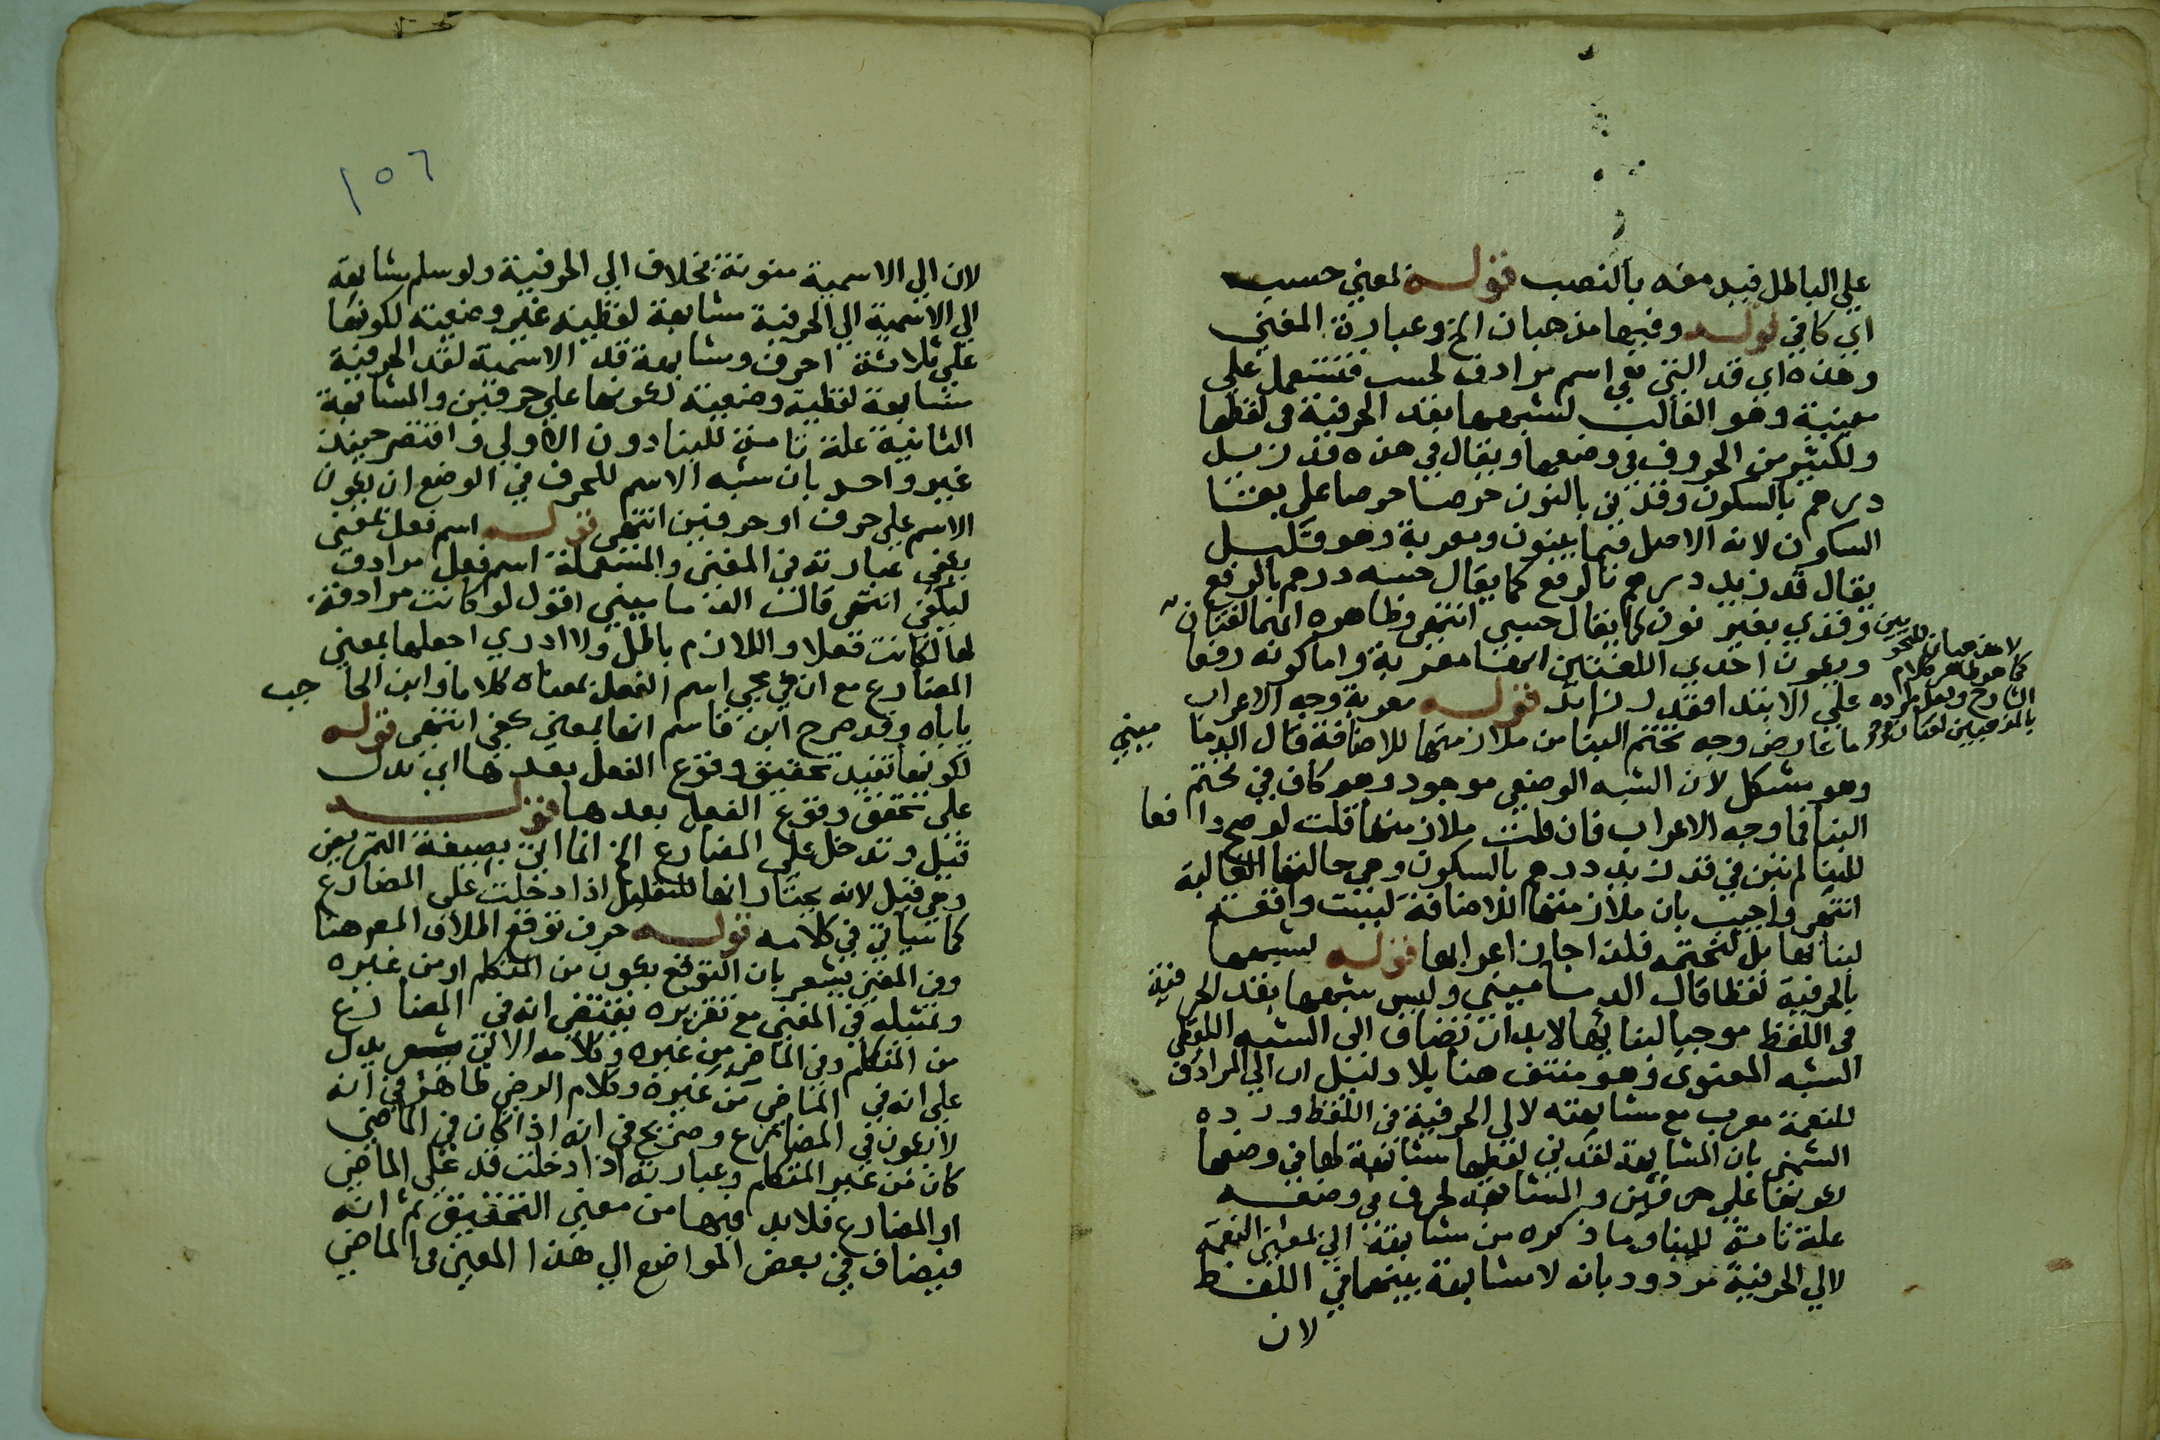 على الباطل فيدمغه بالنصب قوله بمعنى حسب
اي كافي قوله وفيها مذهبان الخ وعبارة المغني
وهذه اي قد التي هي اسم مرادف لحسب تستعمل على
مبنية وهو الغالب لشبهها بقد الحرفية في لفظها
ولكثير من الحروف في وضعها ويقال في هذه قد زيد
درهم بالسكون وقدني بالنون حرصا حرصا على بقا
السكون لانه الاصل فيما يبنون ومعربة وهو قليل
يقال قد زيد درهم بالرفع كما يقال حسبه درهم بالرفع
وقدي بغير نون كما يقال حسبي انتهى وظاهره انهما لغتان
ويكون احدي اللغتين انها معربة واما كونه رفعا
على الابتدا فقدر زائد قوله معربة وجه الاعراب
ما عارض وجه تحتم البنا من ملازمتها للاضافة قال الدماميني
وهو مشكل لان الشبه الوضعي موجود وهو كاف في تحتم
البنا فما وجه الاعراب فان قلت ملازمتها قلت لو صح دافعا
للبنا لم تبن في قد زيد درهم بالسكون وهي حالتها الغالبة
انتهى واجيب بان ملازمتها للاضافة ليست وافقت
لبنائها بل لتحتمه فلذا اجاز اعرابها قوله لشبهها
بالحرفية لفظا قال الدماميني وليس شبهها بقد الحرفية
في اللفظ موجبا لبنائها لابد ان تضاف الى الشبه اللفظي
الشبه المعنوي وهو منتف هنا بلا دليل ان الي المرادف
للنعمة معرب مع مشابهته لالى الحرفية في اللفظ ورده
الشمني بان المشابهة لقد في لفظها مشابهة لها في وضعها
لكونها على حرفين والمشابهة لحرف في وضعه
علة تامة للبنا وما ذكره من مشابهة الي بمعنى النعمة
لالي الحرفية مردود بانه لا مشابهة بينهما في اللفظ
لان
لا مذهبان للنحو
كما هو ظاهر كلام
الشارح ولعل مراده
بالمذهبين لغتان
١٥٦
لان الي الاسمية منونة بخلاف الي الحرفية ولو سلم مشابهة
الي الاسمية الي الحرفية مشابهة لفظية غير وضعية لكونها
على ثلاثة احرف ومشابهة قد الاسمية لقد الحرفية
مشابهة لفظية وضعية لكونها على حرفين والمشابهة
الثانية علة تامة للبنا دون الاولي واقتصر
غير واحد بان شبه الاسم للحرف في الوضع ان يكون
الاسم على حرف او حرفين انتهى قوله اسم فعل بمعنى
يكفي عبارته في المغني والمستعملة اسم فعل مرادف
ليكفي انتهى قال الدماميني اقول لو كانت مرادفة
لها لكانت فعلا واللازم باطل ولا ادري اجعلها بمعنى
المضارع مع ان في مجي اسم الفعل بمعناه كلاما وابن الحاجب
ياباه وقد صرح ابن قاسم انها بمعنى كفي انتهى قوله
لكونها تفيد تحقيق وقوع الفعل بعدها اي تدل
على تحقق وقوع الفعل بعدها قوله
قيل وتدخل على المضارع الخ انما اتى بصيغة التمريض
وهي قيل لانه يختار انها للتقليل اذا دخلت على المضارع
كما سياتي في كلامه قوله حرف توقع اطلاق المص هنا
وفي المغني يشعر بان التوقع يكون من المتكلم او من غيره
وتمثيله في المغني مع تقريره يقتضي انه في المضارع
من المتكلم وفي الماضي من غيره وكلامه الاتي يدل
على انه في الماضي من غيره وكلام الرضي ظاهر في انه
لا يكون في المضارع وصريح في انه اذا كان في الماضي
كان من غير المتكلم وعبارته اذا دخلت قد على الماضي
او المضارع فلابد فيها من معنى التحقيق ثم انه
فيضاف في بعض المواضع الي هذا المعنى في الماضي